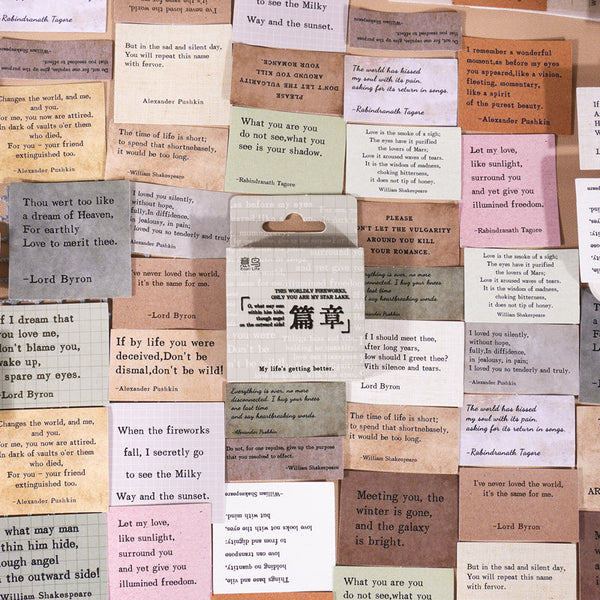 -Rabindranath Tagore
I've never loved the world,
it's the same for me.
to see the Milky
Way and the sunset.
-William Shakespeare
Do not, for one repulse, give up the purpose
that you resolved to effect.
-William Shakespeare
Do not, for one repulse, give up the purpose
But in the sad and silent day,
You will repeat this name
with fervor.
Alexander Pushkin
PLEASE
DON'T LET THE VULGARITY
AROUND YOU KILL
YOUR ROMANCE.
The world has kissed
my soul with its pain.
asking for its return in songs.
-Rabindranath Tagore
I remember a wonderful
moment,as before my eyes
you appeared,like a vision,
fleeting, momentary,
like a spirit
of the purest beauty.
-Alexander Pushkin
Changes the world, and me,
and you.
or me, you now are attired.
In dark of vaults o'er them
who died,
For you – your friend
extinguished too.
Alexander Pushkin
The time of life is short;
to spend that shortnebasely,
it would be too long.
-William Shakespeare
What you are you
do not see,what you
see is your shadow.
-Rabindranath Tagore
Love is the smoke of a sigh;
The eyes have it purified
the lovers of Mars;
Do it around waves of tears.
It is the wisdom of madness,
choking bitterness,
it does not tip of honey.
William Shakespeare
Let my love,
like sunlight,
surround you
and yet give you
illumined freedom.
-Rabindranath Tagore
Thou wert too like
a dream of Heaven,
For earthly
Love to merit thee.
-Lord Byron
I loved you silently,
without hope,
fully,In diffidence,
in jealousy, in pain;
I loved you so tenderly and truly
-Alexander Pushkin
PLEASE
DON'T LET THE VULGARITY
AROUND YOU KILL
YOUR ROMANCE.
Love is the smoke of a sigh;
The eyes have it purified
the lovers of Mars;
Do it around waves of tears.
It is the wisdom of madness,
choking bitterness,
it does not tip of honey.
William Shakespeare
I've never loved the world,
it's the same for me.
-Lord Byron
THIS WORLDLY FIREWORKS,
ONLY YOU ARE MY STAR LAKE.
O, what may man
within him hide,
though angel
on the outward side!
「篇章」
My life's getting better.
Everything is over, no more
disconnected. I hug your knees
one last time
and say heartbreaking words.
-Alexander Pushkin
If I dream that
you love me,
don't blame you,
wake up,
spare my eyes.
-Lord Byron
If by life you were
deceived,Don't be
dismal,don't be wild!
-Alexander Pushkin
If I should meet thee,
After long years,
How should I greet thee?
With silence and tears.
Lord Byron
I loved you silently,
without hope,
fully,In diffidence,
in jealousy, in pain;
I loved you so tenderly and truly.
-Alexander Pushkin
Everything is over, no more
disconnected. I hug your knees
one last time
and say heartbreaking words.
-Alexander Pushkin
Changes the world, and me,
and you.
or me, you now are attired.
In dark of vaults o'er them
who died,
For you – your friend
extinguished too.
-Alexander Pushkin
When the fireworks
fall, I secretly go
to see the Milky
Way and the sunset.
Do not, for one repulse, give up the purpose
that you resolved to effect.
-William Shakespeare
The time of life is short;
to spend that shortnebasely,
it would be too long.
-William Shakespeare
The world has kissed
my soul with its pain.
asking for its return in songs.
-Rabindranath Tagore
I've never loved the world,
it's the same for me.
-Lord Byron
what may man
within him hide,
though angel
on the outward side!
William Shakespeare
Let my love,
like sunlight,
surround you
and yet give you
illumined freedom.
Things base and vile,
holding no quantity,
love can transpose
to from and dignity:
love looks not with the eyes,
but with mind.
-William Shakespeare
Meeting you, the
winter is gone,
and the galaxy
is bright.
What you are you
do not see,what you
But in the sad and silent day,
You will repeat this name
with fervor.